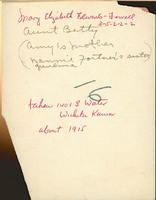 Mary Elizabeth Edwards-Fowell
8-5-2-2-2
Aunt Betty
(Amy's mother)
Nannie Fortner's sister
16
taken 1401 S Water
Wichita Kansas
about 1915